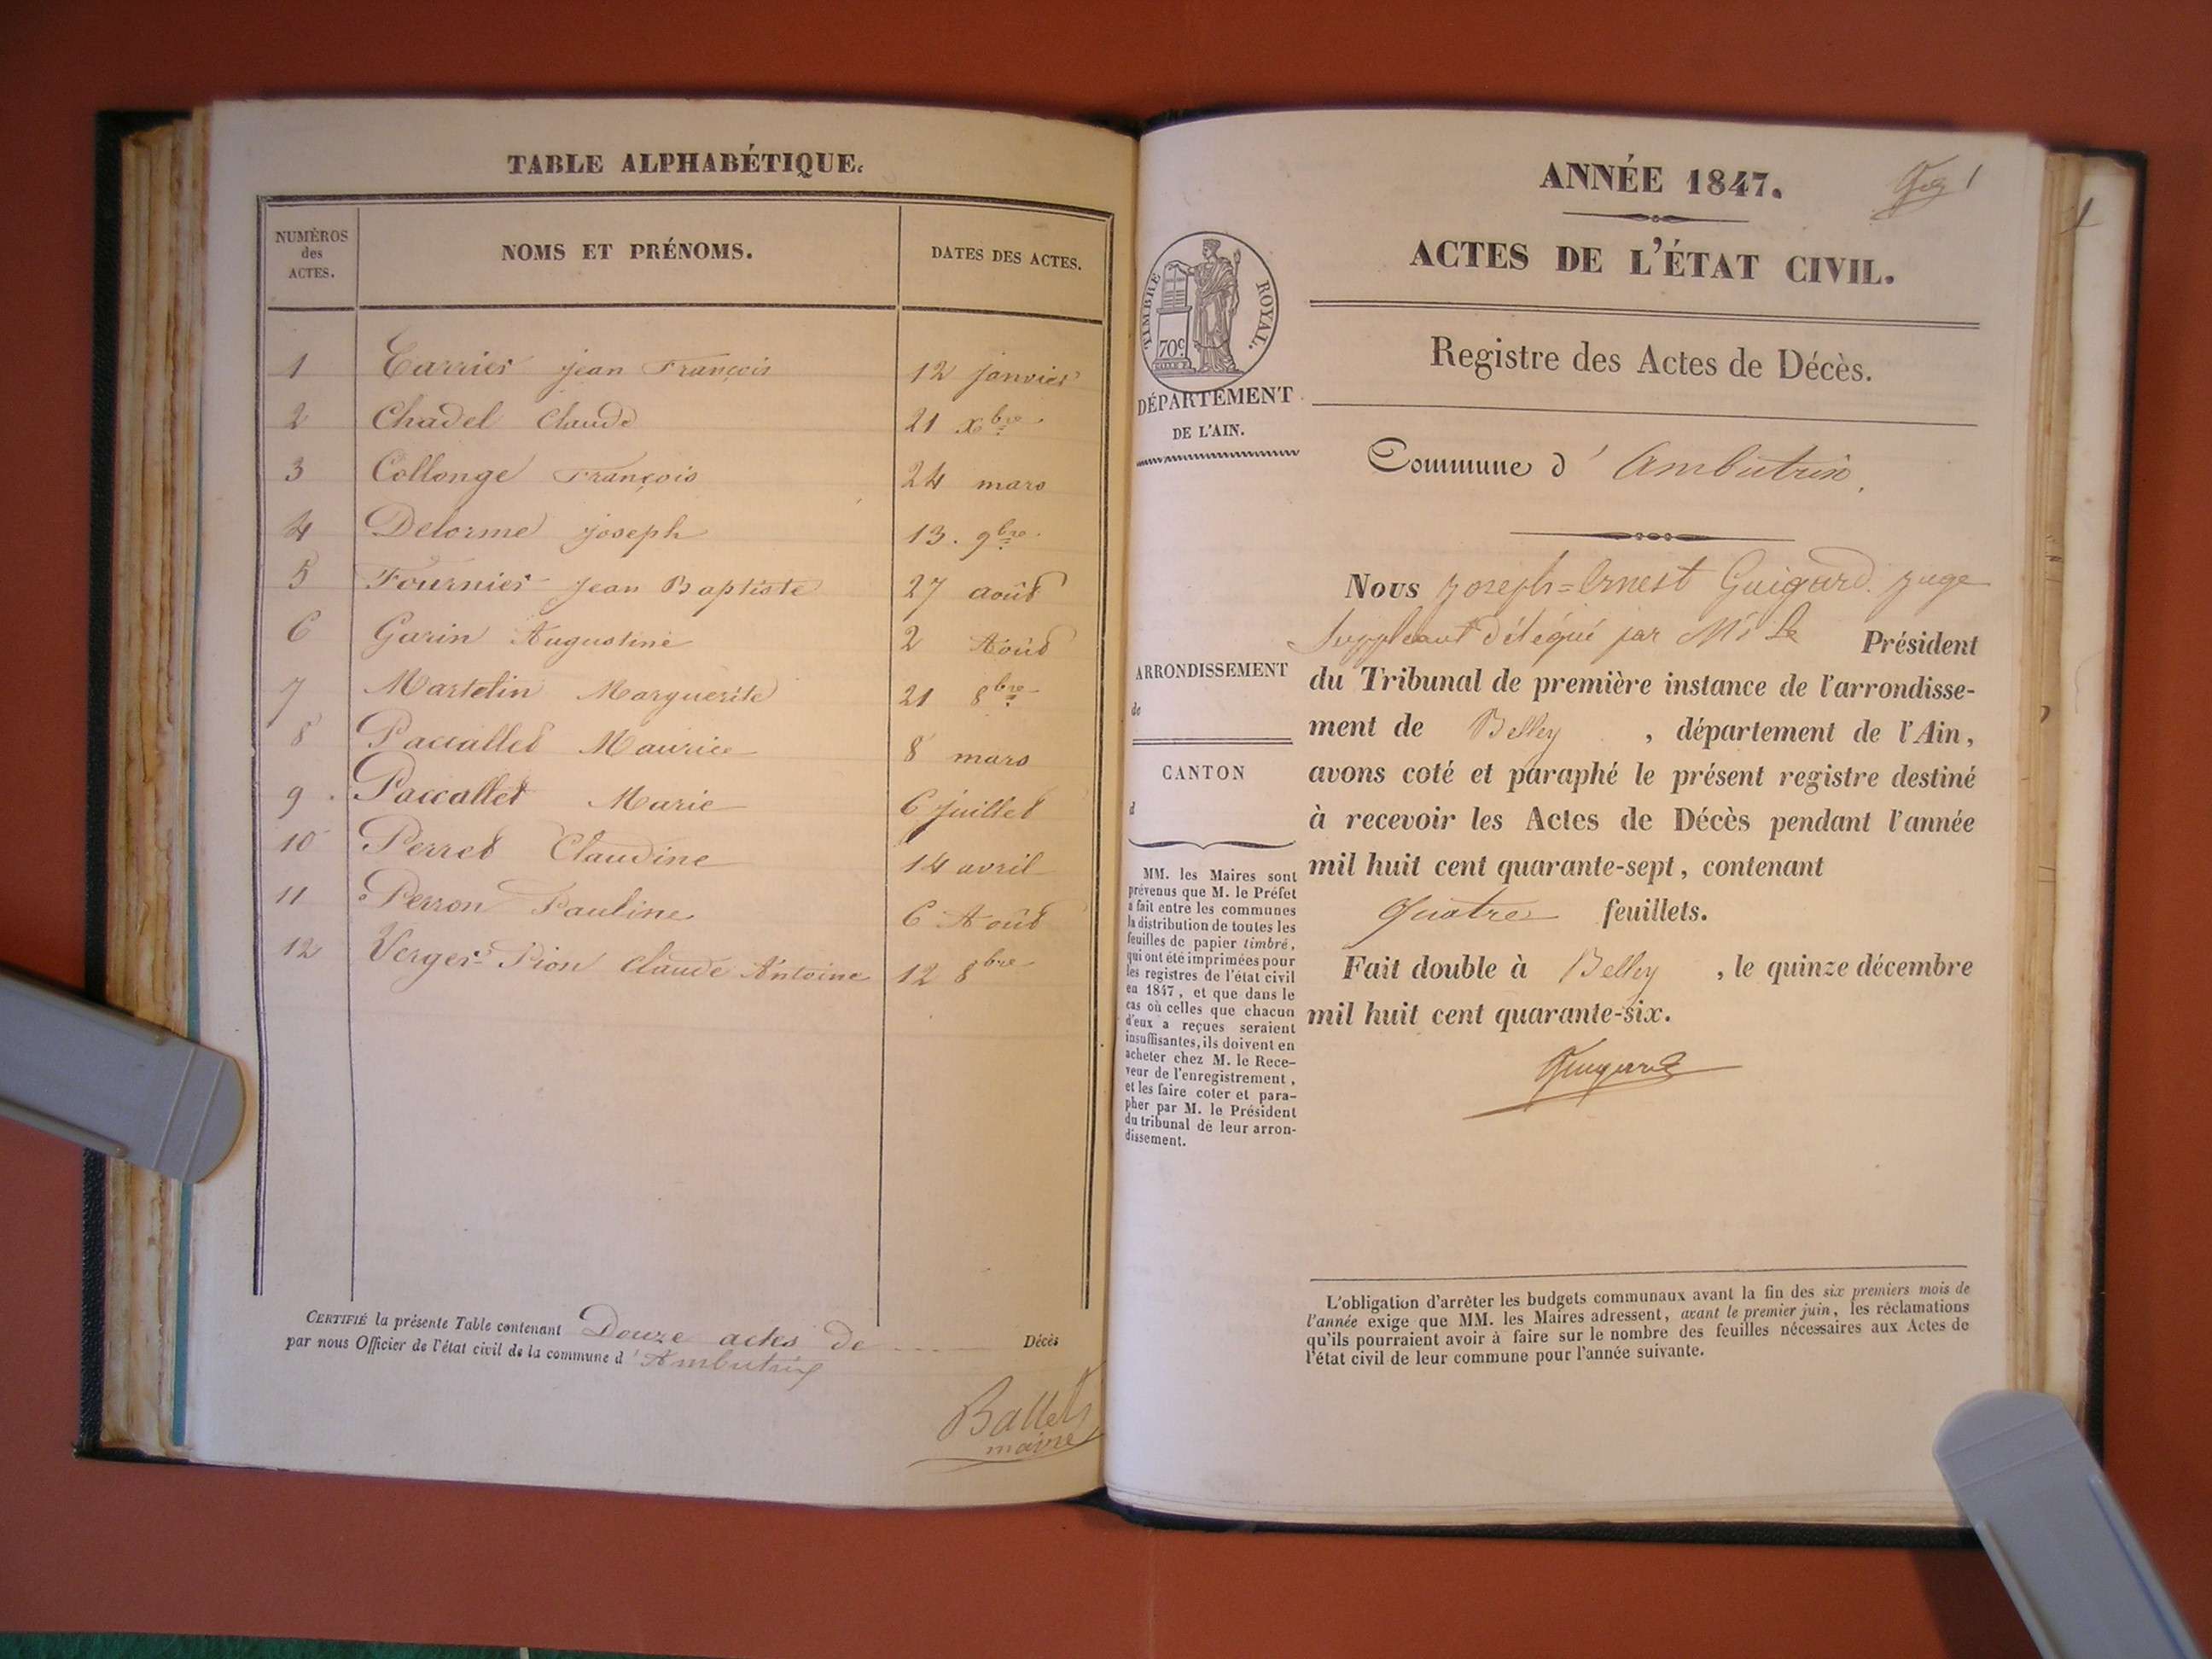 TABLE ALPHABÉTIQUE.
NUMÉROS des ACTES. NOMS ET PRÉNOMS. DATES DES ACTES.
1 Carrier jean François 12 janvier
2 Chadel Claude 21 Xbre
3 Collonge François 24 mars
4 Delorme joseph 13. 9bre
5 Fournier jean Baptiste 27 août
6 Garin Augustine 2 Août
7 Martelin Marguerite 21 8bre
8 Paccallet Maurice 8 mars
9 Paccallet Marie 6 juillet
10 Perret Claudine 14 avril
11 Perron Pauline 6 Août
12 Verger-Pion Claude Antoine 12 8bre
CERTIFIÉ la présente Table contenant Douze actes de Décès
par nous Officier de l'état civil de la commune d'Ambutrix
Ballet
maire
ANNÉE 1847.
1
ACTES DE L'ÉTAT CIVIL.
TIMBRE ROYAL.
70c
DÉPARTEMENT
DE L'AIN.
Registre des Actes de Décès.
Commune d'Ambutrix.
Nous joseph=Ernest Guigard. juge
suppléant délégué par Mr Le Président
du Tribunal de première instance de l'arrondisse-
ment de Belley, département de l'Ain,
avons coté et paraphé le présent registre destiné
à recevoir les Actes de Décès pendant l'année
mil huit cent quarante-sept, contenant
quatre feuillets.
Fait double à Belley, le quinze décembre
mil huit cent quarante-six.
Guigard
ARRONDISSEMENT
de
CANTON
d
MM. les Maires sont
prévenus que M. le Préfet
a fait entre les communes
la distribution de toutes les
feuilles de papier timbré,
qui ont été imprimées pour
les registres de l'état civil
en 1847, et que dans le
cas où celles que chacun
d'eux a reçues seraient
insuffisantes, ils doivent en
acheter chez M. le Rece-
veur de l'enregistrement,
et les faire coter et para-
pher par M. le Président
du tribunal de leur arron-
dissement.
L'obligation d'arrêter les budgets communaux avant la fin des six premiers mois de
l'année exige que MM. les Maires adressent, avant le premier juin, les réclamations
qu'ils pourraient avoir à faire sur le nombre des feuilles nécessaires aux Actes de
l'état civil de leur commune pour l'année suivante.